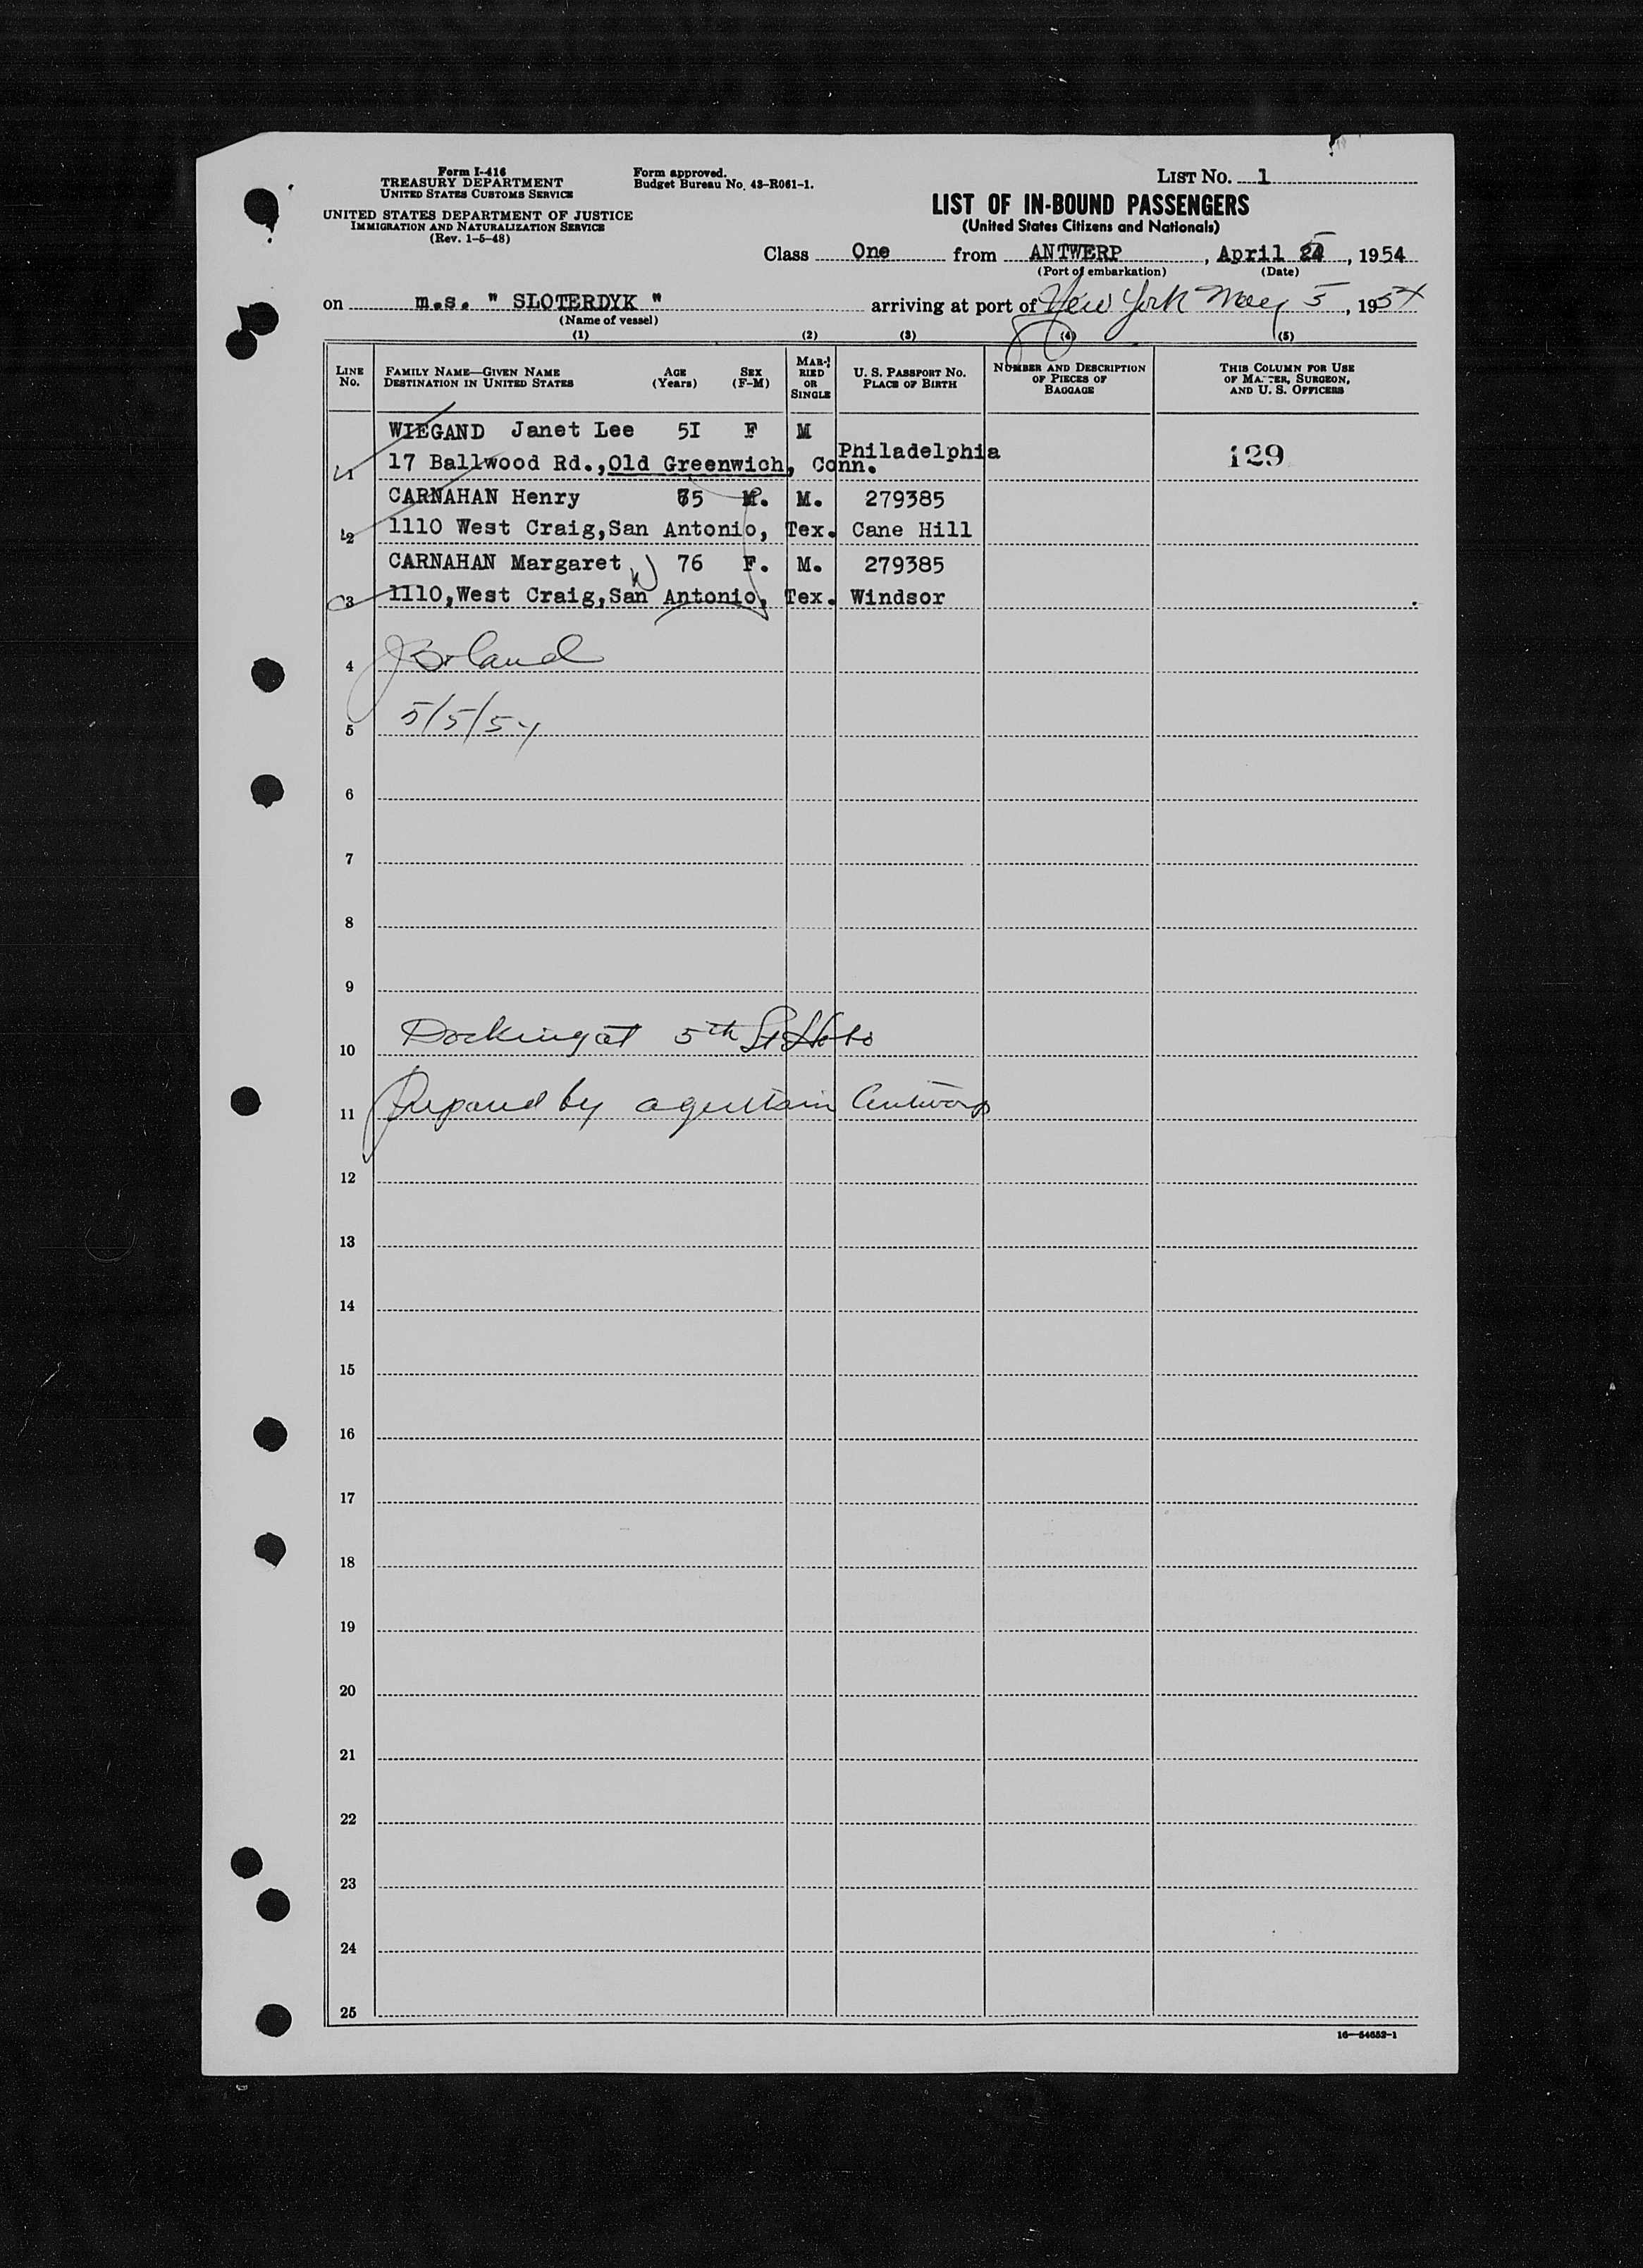 Form I-416
TREASURY DEPARTMENT
UNITED STATES CUSTOMS SERVICE
UNITED STATES DEPARTMENT OF JUSTICE
IMMIGRATION AND NATURALIZATION SERVICE
(Rev. 1-5-48)
Form approved.
Budget Bureau No. 43-R061-1.
LIST NO. 1
LIST OF IN-BOUND PASSENGERS
(United States Citizens and Nationals)
Class One from ANTWERP, April , 1954
(Port of embarkation) (Date)
on m.s. " SLOTERDYK " arriving at port of New York May 5, 1954
(Name of vessel)
(1) (2) (3) (4) (5)
LINE NO.
FAMILY NAME—GIVEN NAME
DESTINATION IN UNITED STATES
AGE (Years)
SEX (F-M)
MARRIED OR SINGLE
U. S. PASSPORT NO.
PLACE OF BIRTH
NUMBER AND DESCRIPTION OF PIECES OF BAGGAGE
THIS COLUMN FOR USE OF MASTER, SURGEON, AND U. S. OFFICERS
WIEGAND Janet Lee 5I F M
1 17 Ballwood Rd.,Old Greenwich, Conn. Philadelphia 129
CARNAHAN Henry 75 M. M. 279385
2 1110 West Craig,San Antonio, Tex. Cane Hill
CARNAHAN Margaret W 76 F. M. 279385
3 1110,West Craig,San Antonio, Tex. Windsor
4
5 5/5/54
6
7
8
9
10 Docking at 5th St Hobo
11 Prepared by agents in Antwerp
12
13
14
15
16
17
18
19
20
21
22
23
24
25
16—54652-1